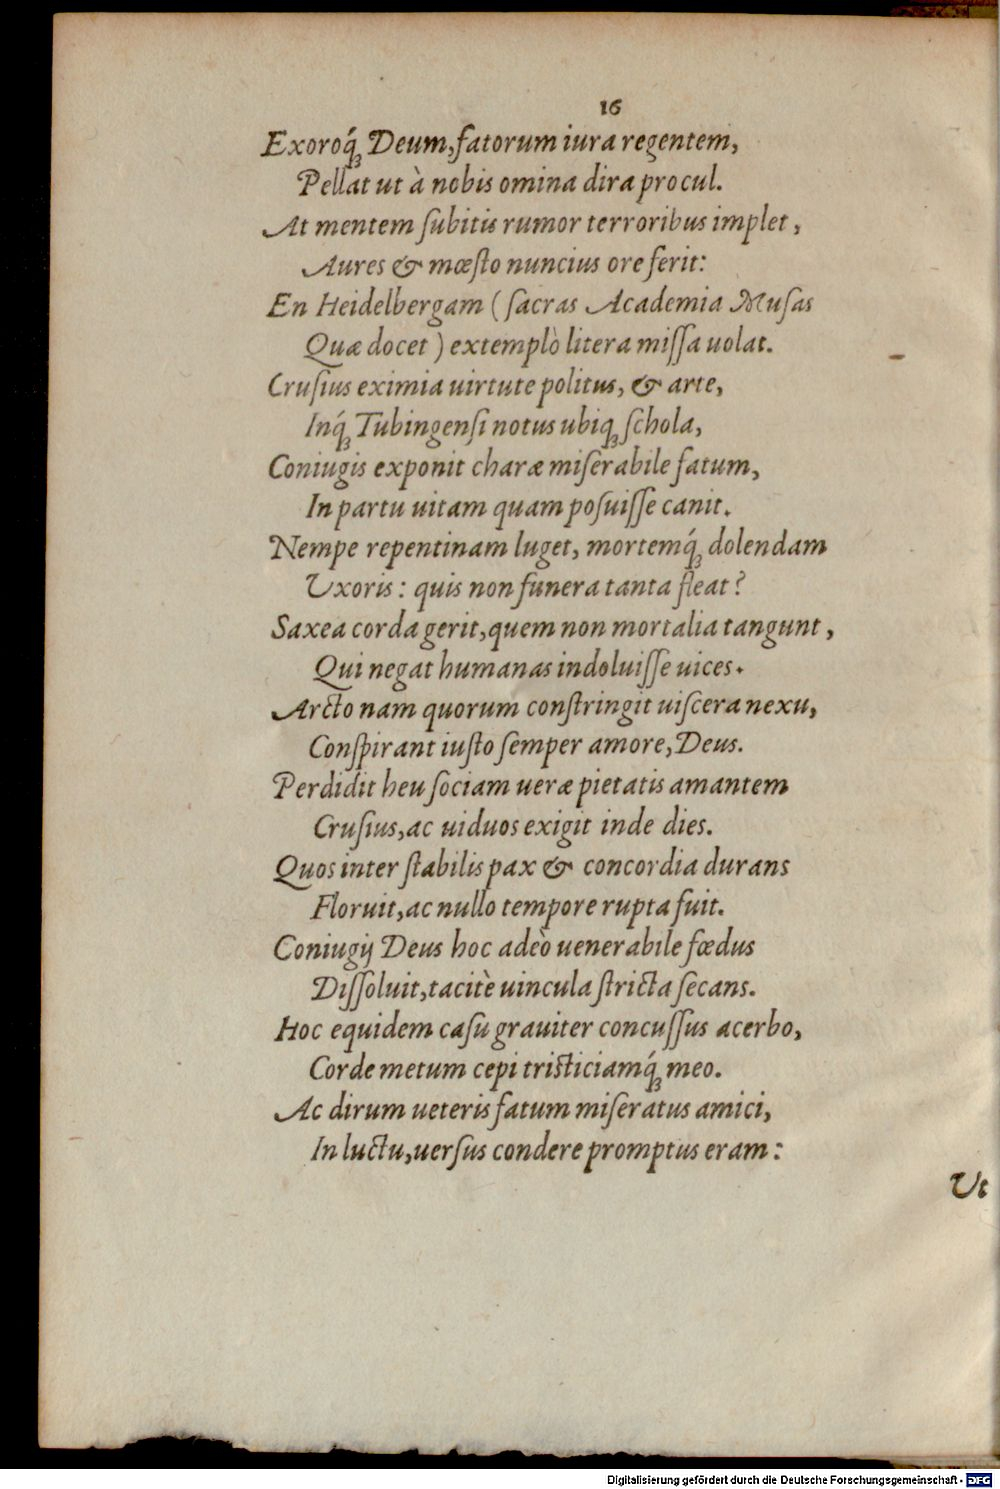 16
Exoroq́ꝫ Deum, fatorum iura regentem,
Pellat ut à nobis omina dira procul.
At mentem ſubitis rumor terroribus implet,
Aures & mœſto nuncius ore ferit:
En Heidelbergam (ſacras Academia Muſas
Quæ docet) extemplò litera miſſa uolat.
Cruſius eximia uirtute politus, & arte,
Inq́ꝫ Tubingenſi notus ubiqꝫ ſchola,
Coniugis exponit charæ miſerabile fatum,
In partu uitam quam poſuiſſe canit.
Nempe repentinam luget, mortemq́ꝫ dolendam
Uxoris: quis non funera tanta fleat?
Saxea corda gerit, quem non mortalia tangunt,
Qui negat humanas indoluiſſe uices.
Arcto nam quorum conſtringit uiſcera nexu,
Conſpirant iuſto ſemper amore, Deus.
Perdidit heu ſociam ueræ pietatis amantem
Cruſius, ac uiduos exigit inde dies.
Quos inter ſtabilis pax & concordia durans
Floruit, ac nullo tempore rupta fuit.
Coniugij Deus hoc adeò uenerabile fœdus
Diſſoluit, tacitè uincula ſtricta ſecans.
Hoc equidem caſu grauiter concuſſus acerbo,
Corde metum cepi triſticiamq́ꝫ meo.
Ac dirum ueteris fatum miſeratus amici,
In luctu, uerſus condere promptus eram:
Ut
Digitalisierung gefördert durch die Deutsche Forschungsgemeinschaft - DFG